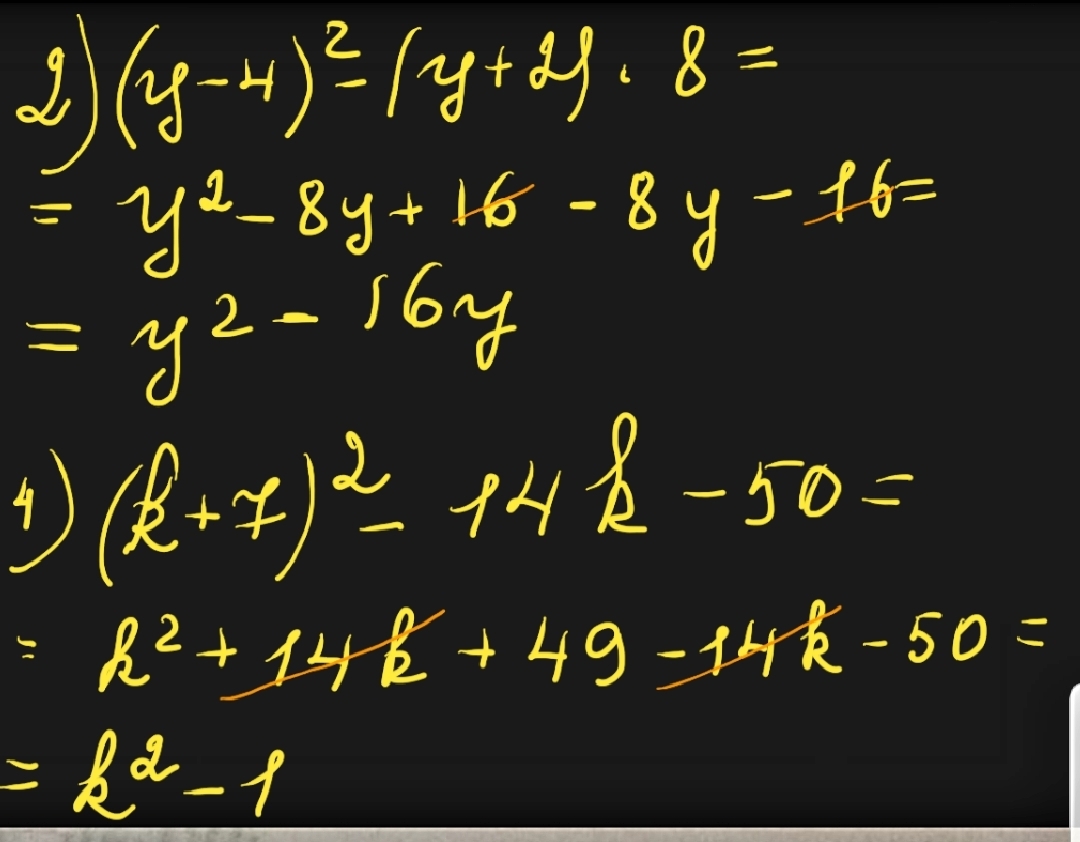 2) (y-4)² - (y+2) · 8 =
= y² - 8y + 16 - 8y - 16 =
= y² - 16y
4) (k+7)² - 14k - 50 =
= k² + 14k + 49 - 14k - 50 =
= k² - 1